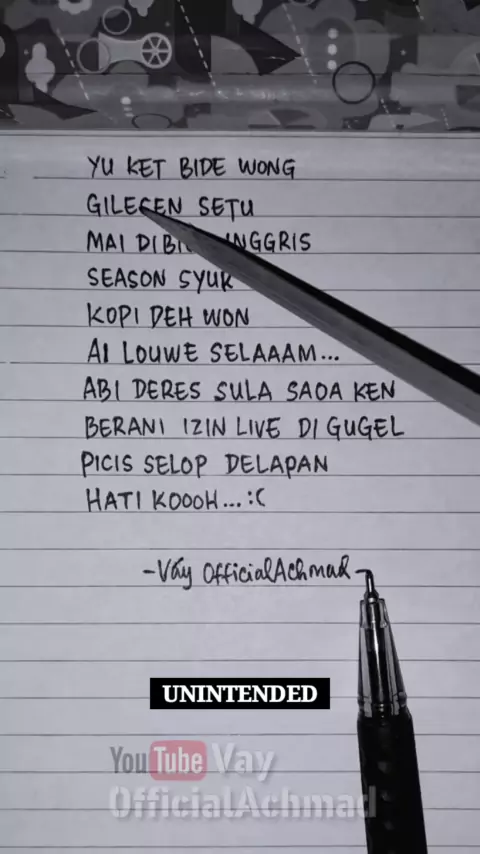 YU KET BIDE WONG
GILECEN SETU
MAI DIBI INGGRIS
SEASON SYUK
KOPI DEH WON
AI LOUWE SELAAAM...
ABI DERES SULA SAOA KEN
BERANI IZIN LIVE DI GUGEL
PICIS SELOP DELAPAN
HATI KOOOH...:(
-Vay OfficialAchmad-
UNINTENDED
YouTube Vay
OfficialAchmad